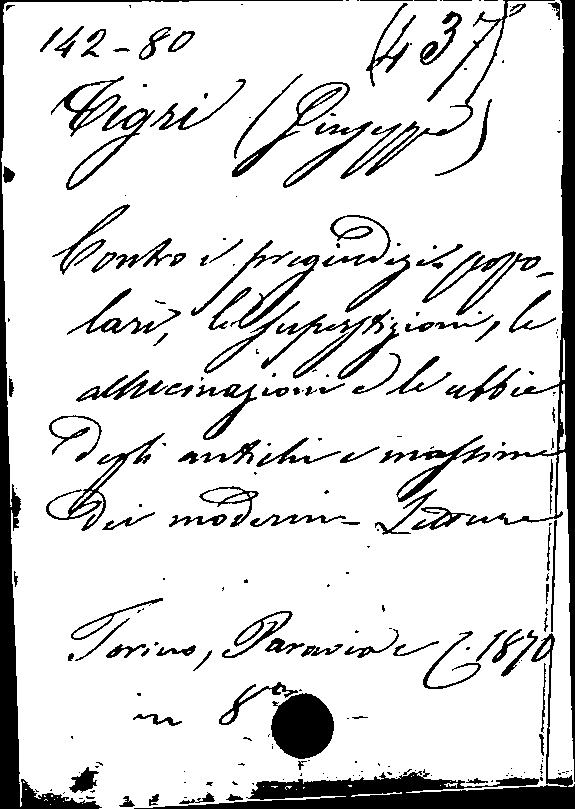 142-80 (437)
Tigri (Giuseppe)
Contro i pregiudizii popo-
lari, le superstizioni, le
allucinazioni e le ubbie
degli antichi e massime
dei moderni - Letture
Torino, Paravia e C. 1870
in 8º